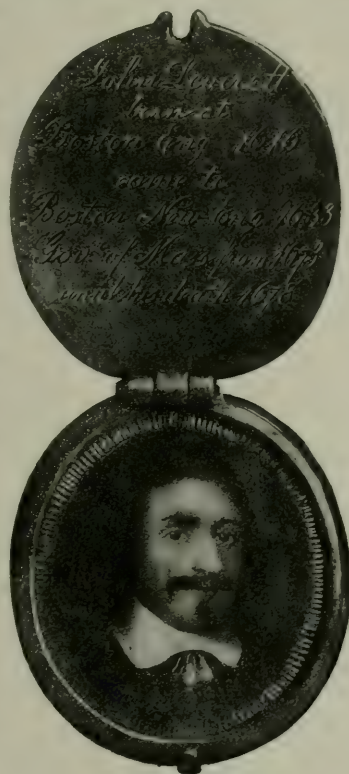 John Leverett
born at
Boston Eng. 1616
came to
Boston New Eng. 1633
Gov. of Mass from 1673
until his death 1678